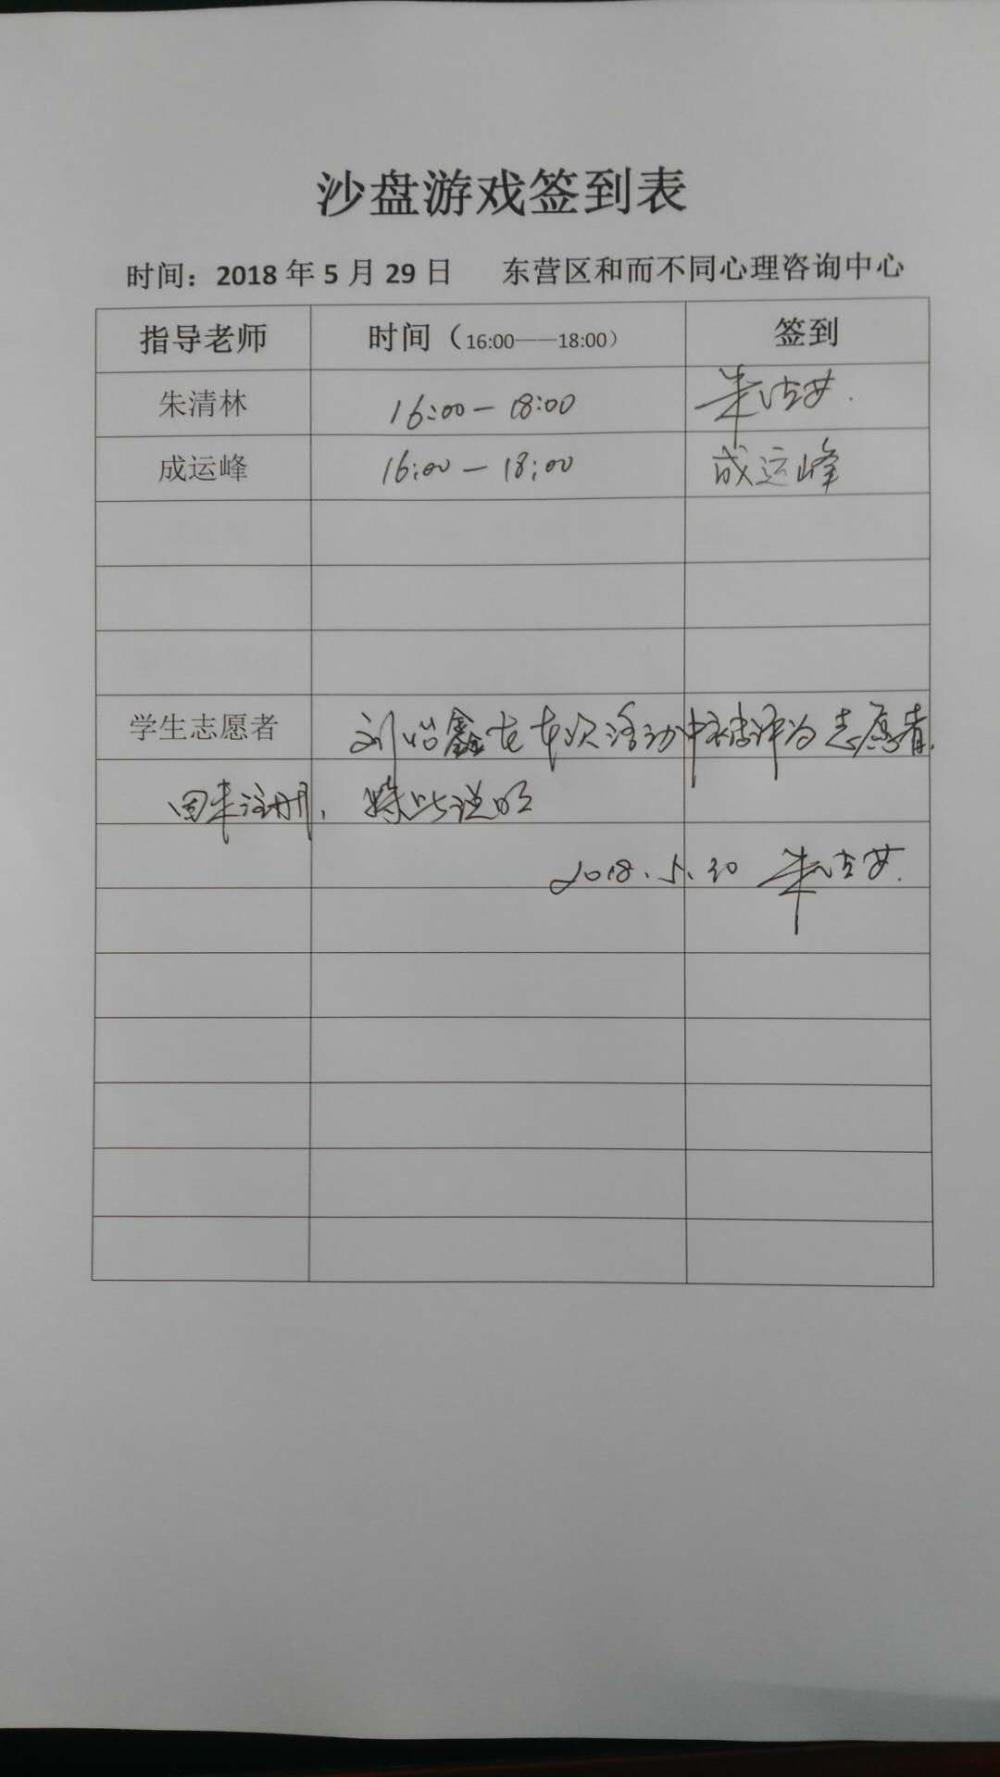 沙盘游戏签到表
时间：2018 年 5 月 29 日 东营区和而不同心理咨询中心
指导老师 时间（16:00——18:00） 签到
朱清林 16:00 — 18:00
成运峰 16:00 — 18:00 成运峰
学生志愿者 刘怡鑫在本次活动中被评为志愿者，
因未注册，特此说明
2018.5.30